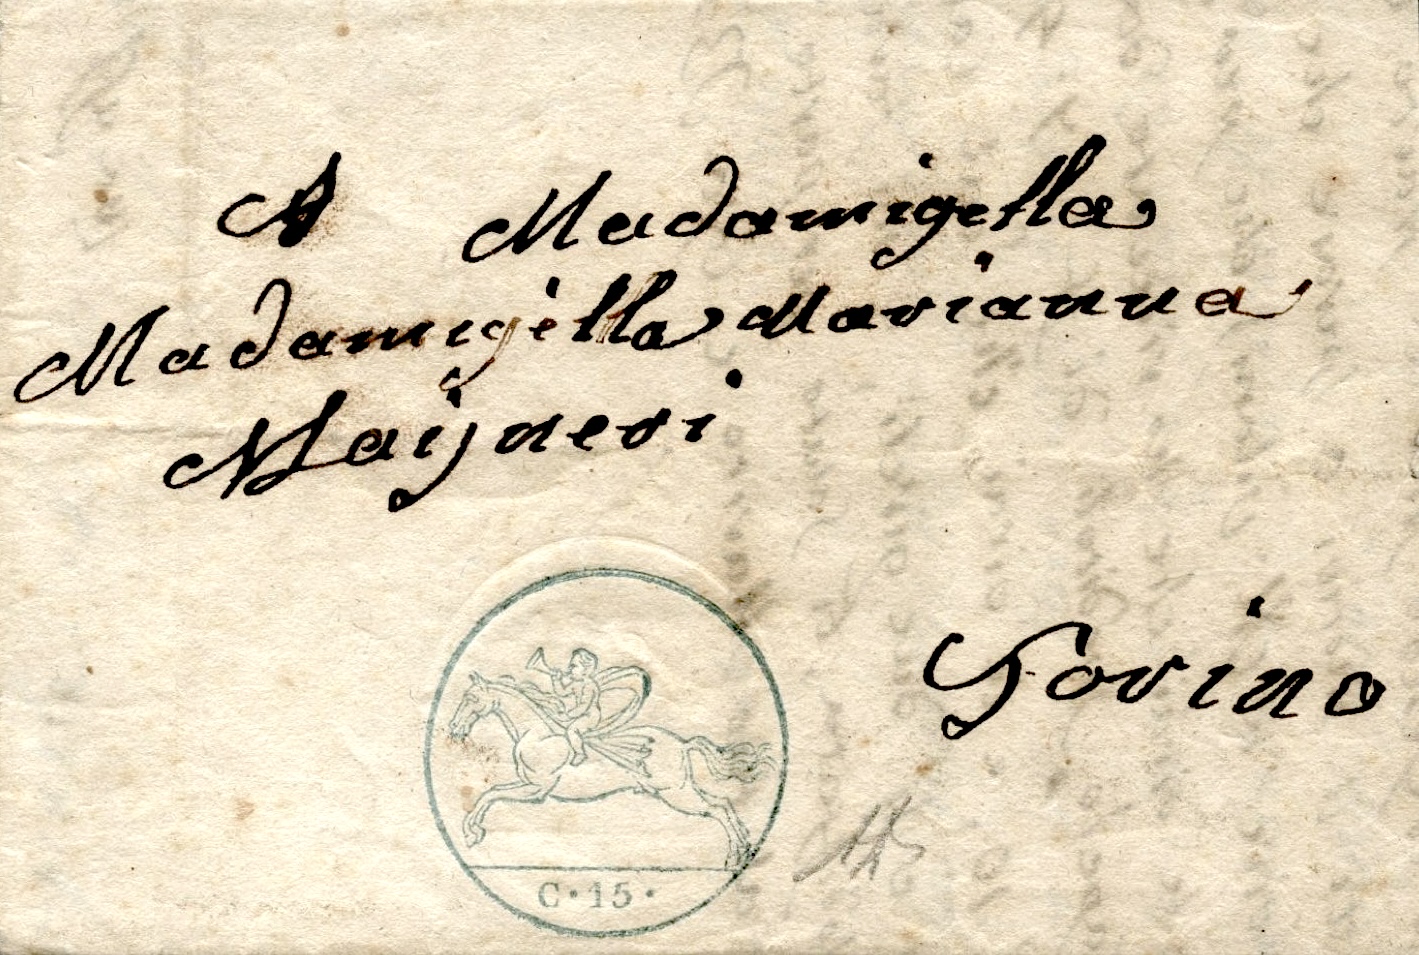 A Madamigella
Madamigella Marianna
Maijneri
Torino
C·15·